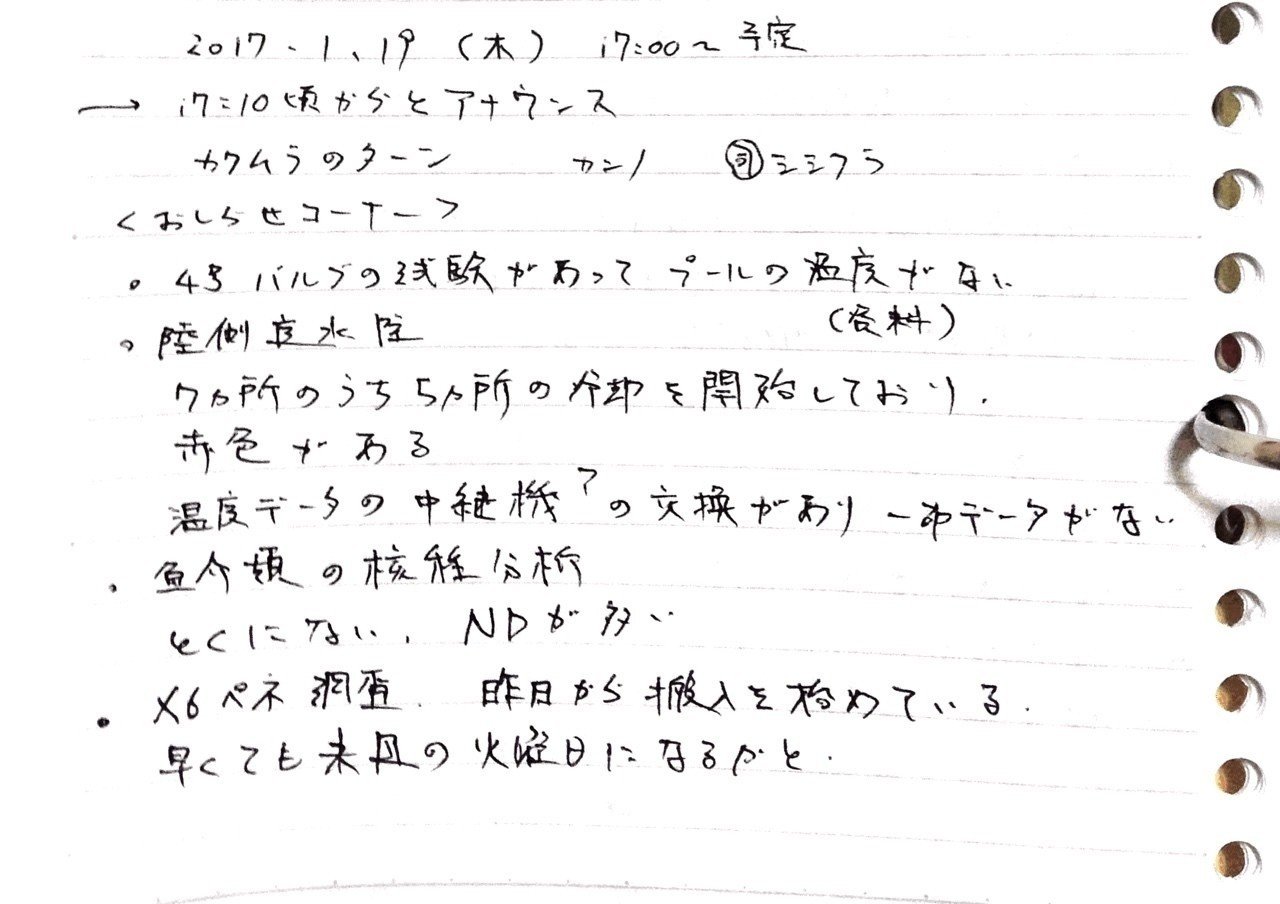 2017.1.19（木） 17:00～予定
→ 17:10頃からとアナウンス
カワムラのターン カンノ ㊂シシクラ
＜おしらせコーナー＞
・4号バルブの試験があって プールの温度がない
（資料）
・陸側遮水壁
7ヵ所のうち5ヵ所の冷却を開始しており．
赤色がある
温度データの中継機？の交換があり 一部データがない
・魚介類の核種分析
とくにない． NDが多い
・X6ペネ調査． 昨日から搬入を始めている．
早くても来週の火曜日になるかと．